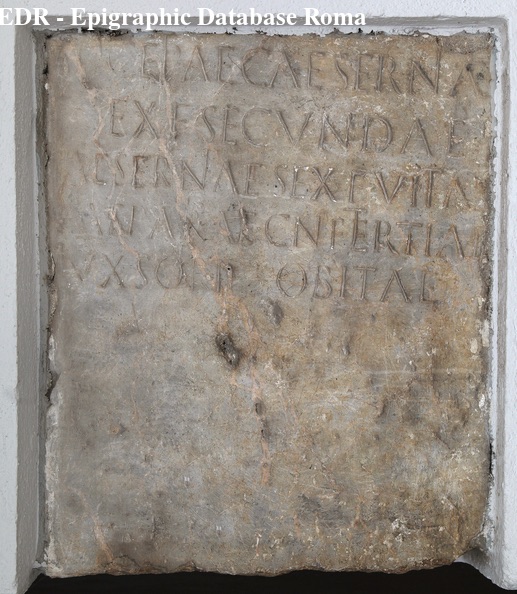 EDR - Epigraphic Database Roma
CAESERNA
EX F SECVNDAE
AESERNAE SEX F VITA
CN F TERTIAE
VXSORI OBITAE